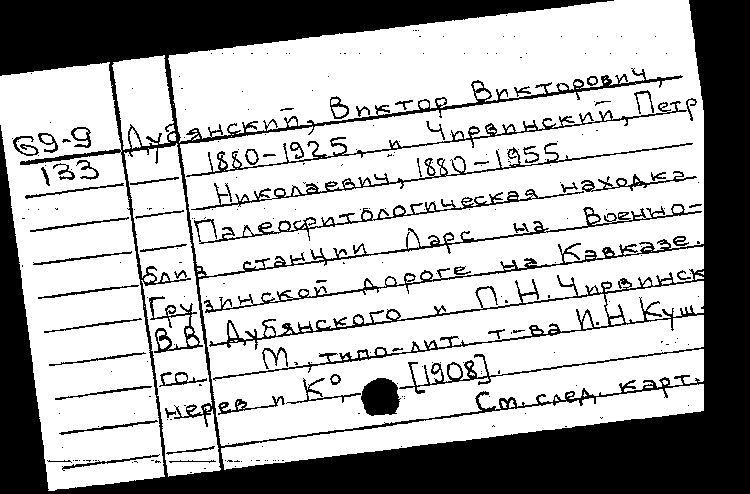 69-9
133
Дубянский, Виктор Викторович,
1880-1925, и Чирвинский, Петр
Николаевич, 1880-1955.
Палеофитологическая находка
близ станции Ларс на Военно-
Грузинской дороге на Кавказе.
В.В. Дубянского и П.Н. Чирвинск
го. М., типо-лит. т-ва И.Н. Куш-
нерев и К°, [1908].
См. след. карт.